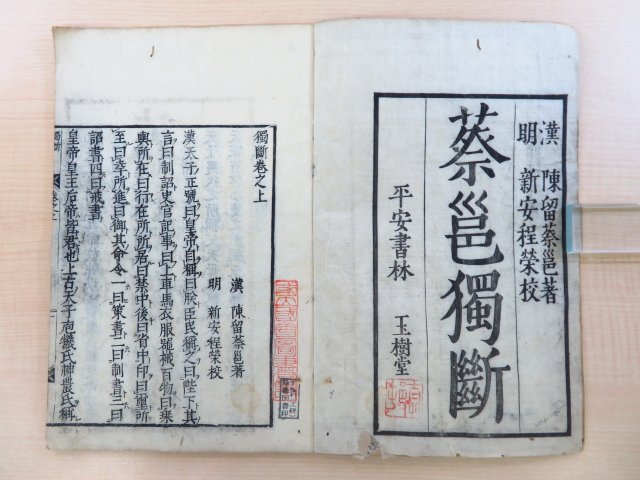 漢 陳留蔡邕著
明 新安程榮校
蔡邕獨斷
平安書林 玉樹堂
獨斷卷之上
漢 陳留蔡邕著
明 新安程榮校
漢天子正號曰皇帝自稱曰朕臣民稱之曰陛下其
言曰制詔史官記事曰上車馬衣服器械百物曰乘
輿所在曰行在所所居曰禁中後曰省中印曰璽所
至曰幸所進曰御其命令一曰策書二曰制書三曰
詔書四曰戒書
皇帝皇王后帝皆君也上古天子庖犧氏神農氏稱
獨斷
卷之上